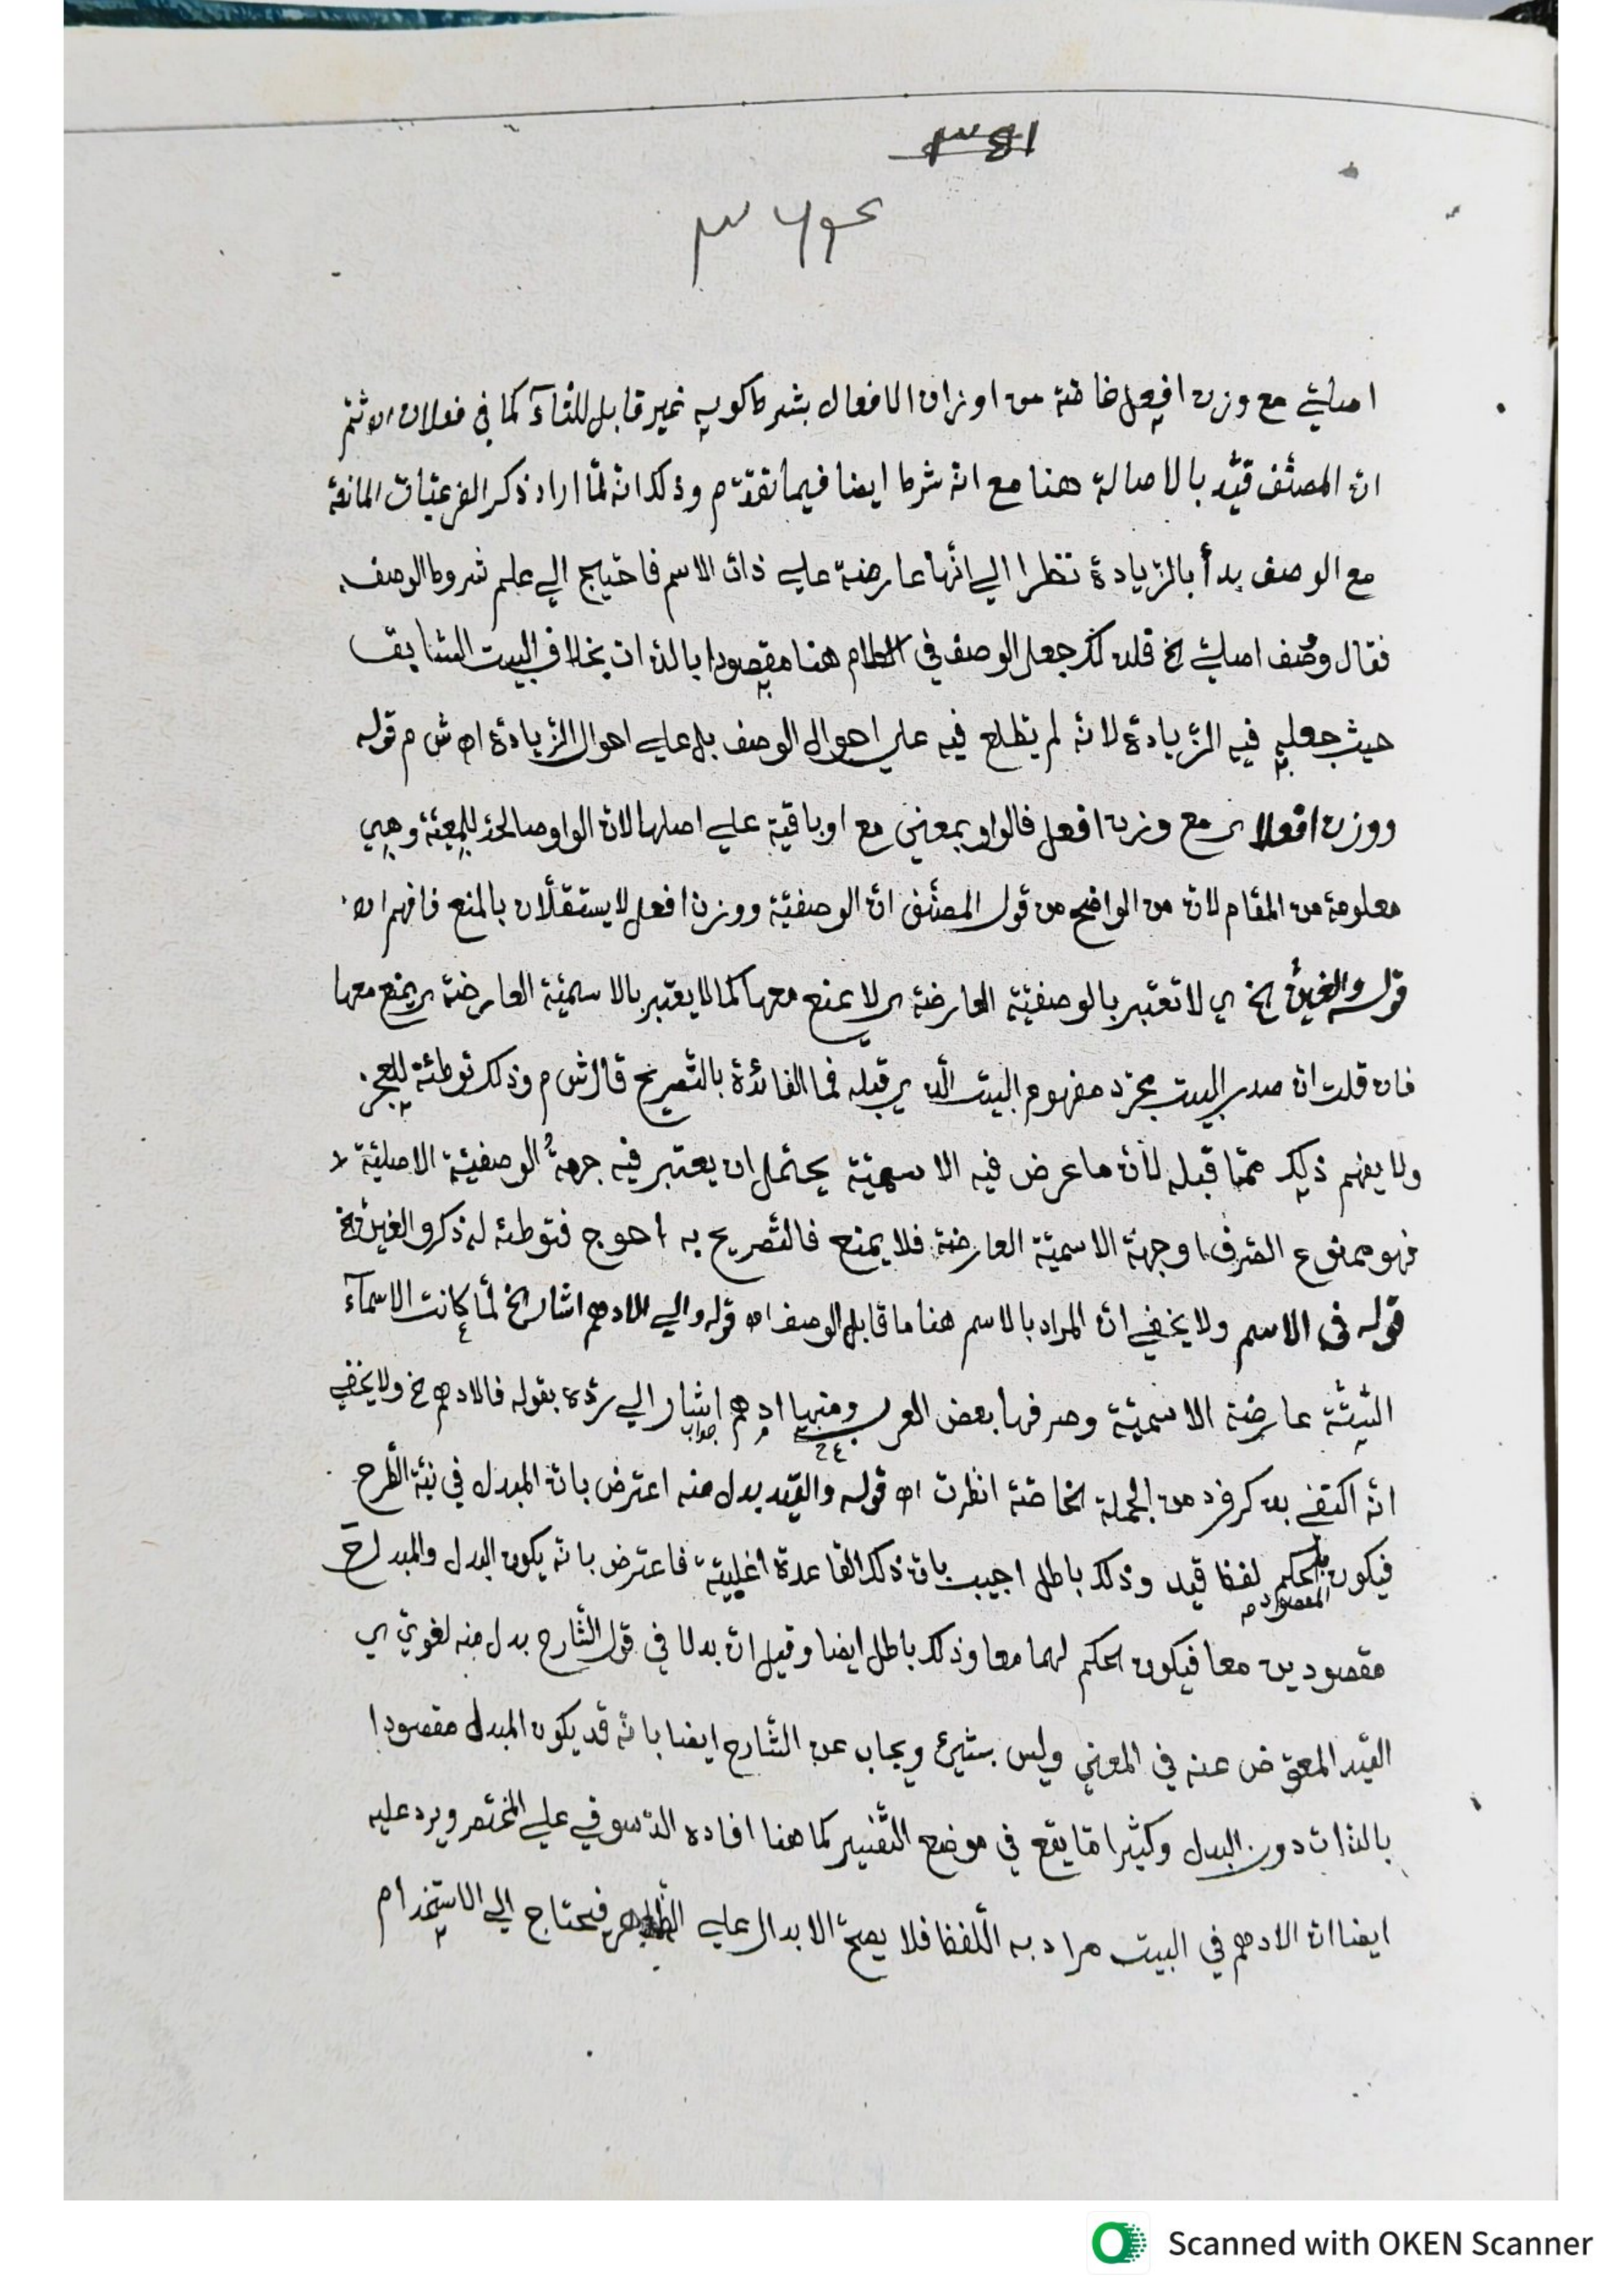 اصليّ مع وزن افعل خاصّة من اوزان الافعال بشرط كونه غير قابل للتّآء كما في فعلان اه ثمّ
انّ المصنّف قيّد بالاصالة هنا مع انّه شرط ايضا فيما تقدّم وذلك انّه لمّا اراد ذكر الفرعيّات المانعة
مع الوصف بدأ بالزّيادة نظرا الي انّها عارضة علي ذات الاسم فاحتيج الي علم شروط الوصف
فقال ووصف اصليّ الخ قلت لكن جعل الوصف في الكلام هنا مقصودا بالذات بخلاف البيت السّابق
حيث جعل فيه الزّيادة لانّه لم يطلع فيه علي احوال الوصف بل علي احوال الزّيادة اه ش م قوله
ووزن افعلا ي مع وزن افعل فالواو بمعني مع او باقية علي اصلها لانّ الواو صالحة للمعيّة وهي
معلومة من المقام لانّ من الواضح من قول المصنّف انّ الوصفيّة ووزن افعل لا يستقلّان بالمنع فافهم اه
قوله والغينّ الخ ي لا تعتبر بالوصفيّة العارضة ي لا يمنع معها كما لا يعتبر بالاسميّة العارضة ي يمنع معها
فان قلت انّ صدر البيت مجرّد مفهوم البيت الّذي قبله فما الفائدة بالتّصريح قال ش م وذلك توطئة للعجز
ولا يفهم ذلك ممّا قبله لأنّ ما عرض فيه الاسميّة يحتمل ان يعتبر فيه جهة الوصفيّة الاصليّة
فهو ممنوع الصّرف او جهة الاسميّة العارضة فلا يمنع فالتّصريح به احوج فتوطئه له ذكر والغينّ الخ
قوله في الاسم ولا يخفي انّ المراد بالاسم هنا ما قابل الوصف اه قوله والي الادهم اشار الخ لمّا كانت الاسمآء
الثّلثة عارضة الاسميّة وصرفها بعض العرب ومنها ادهم اشار الي ردّه بقوله فالادهم خ ولا يخفي
جواب
انّه اكتفي بذكر فرد من الجملة الخاصّة انظرت اه قوله والقيد بدل منه اعترض بانّ المبدل في نيّة الطّرح
فيكون الحكم لفظ قيد وذلك باطل اجيب بانّ ذلك القاعدة اغلبيّة فاعترض بانّه يكون البدل والمبدل ح
المقصود
مقصودين معا فيكون الحكم لهما معا وذلك باطل ايضا وقيل انّ بدلا في قول الشّارح بدل منه لغويّ ي
القيد المعوّض عنه في المعني وليس بشيئ ويجاب عن الشّارح ايضا بانّه قد يكون المبدل مقصودا
بالذّات دون البدل وكثيرا مّا يقع في موضع التّفسير كما هنا افاده الدّسوقي علي المختصر ويرد عليه
ايضا انّ الادهم في البيت مراد به اللّفظ فلا يصحّ الابدال علي الظّاهر فيحتاج الي الاستخدام
Scanned with OKEN Scanner